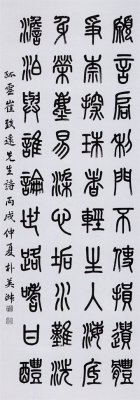 願言扃利門不使損遺體
爭奈探珠者輕生入海底
身榮塵易染心垢水難洗
澹泊與誰論世路嗜甘醴
孤雲崔致遠先生詩丙戌仲夏朴